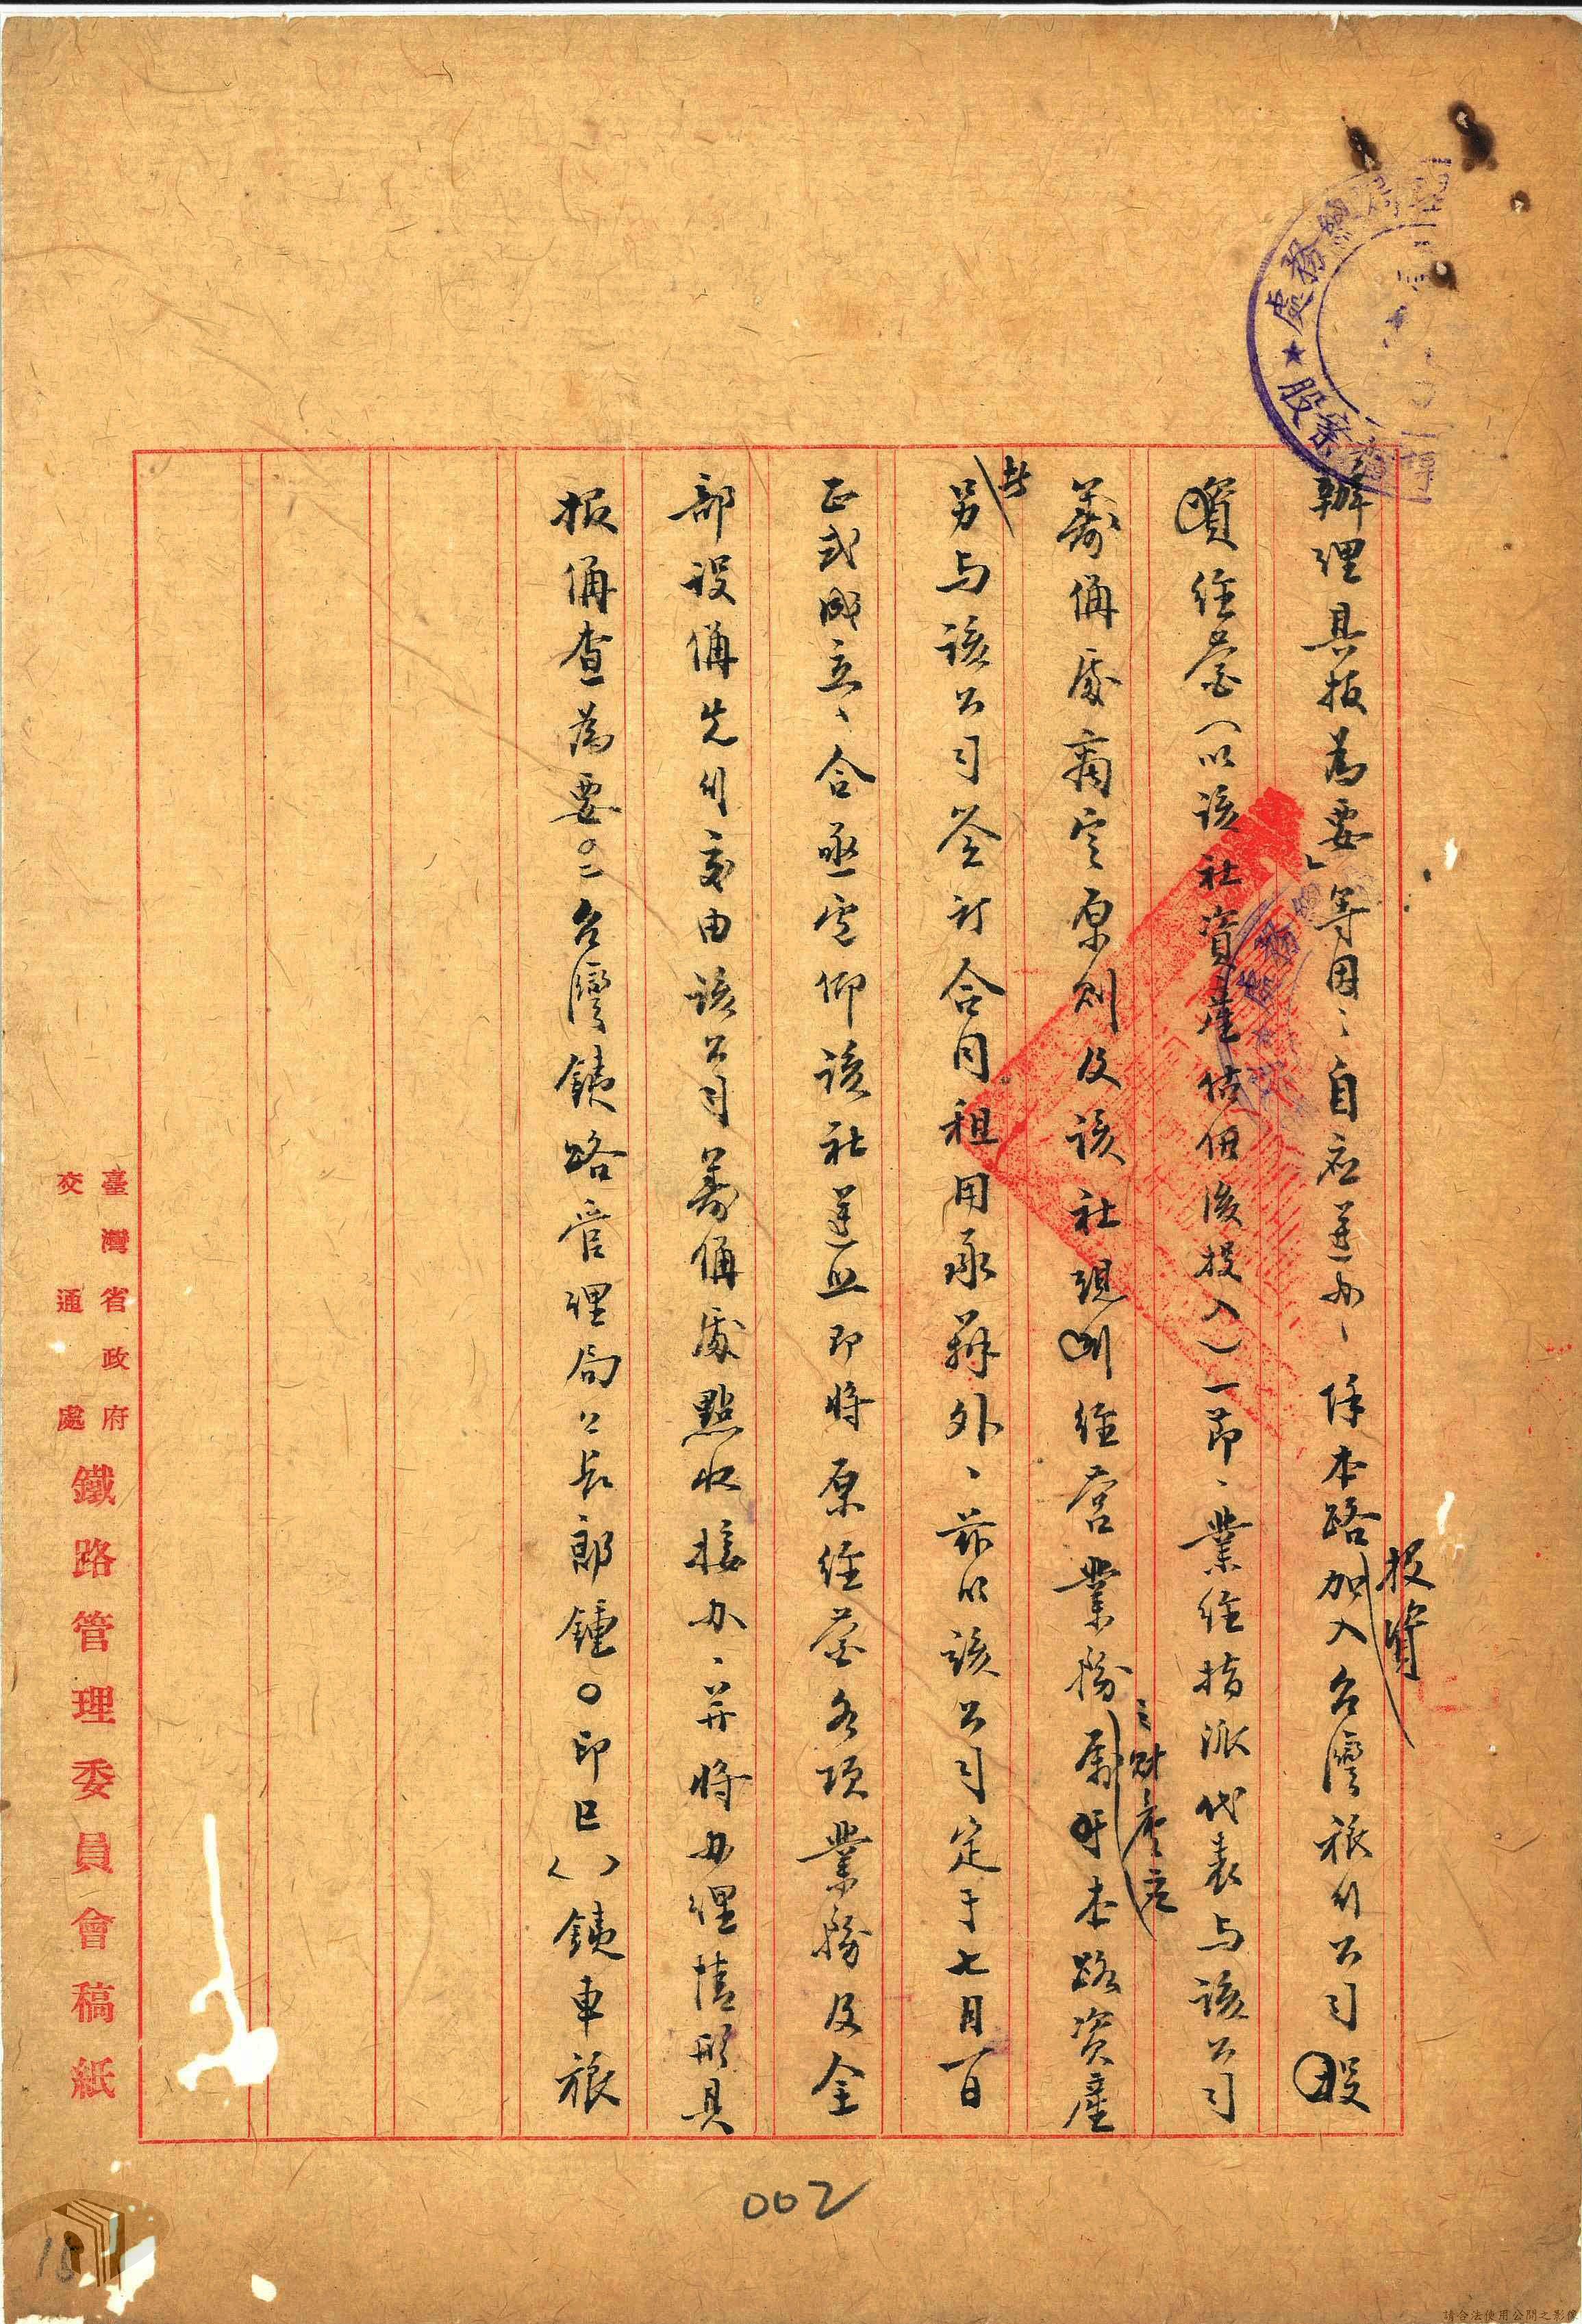 辦理具報為要」等因、自應遵办、除本路加入台灣旅行公司股
投資
資經營(以該社資產估価後投入)一節、業經指派代表与該公司
籌備處商定原則及該社現經营業務屬于本路資產
之財產應
另与該公司簽訂合同租用承辦外、茲以該公司定于七月一日
正式成立、合亟電仰該社遵照即將原經營各項業務及全
部設備先行交由該公司籌備處點收接办、并將办理情形具
報備查為要。台灣鉄路管理局局長郎鍾○印巳()鉄車旅
臺灣省政府
交通處
鐵路管理委員會稿紙
處務總
股案檔
002
15
請合法使用公開之影像